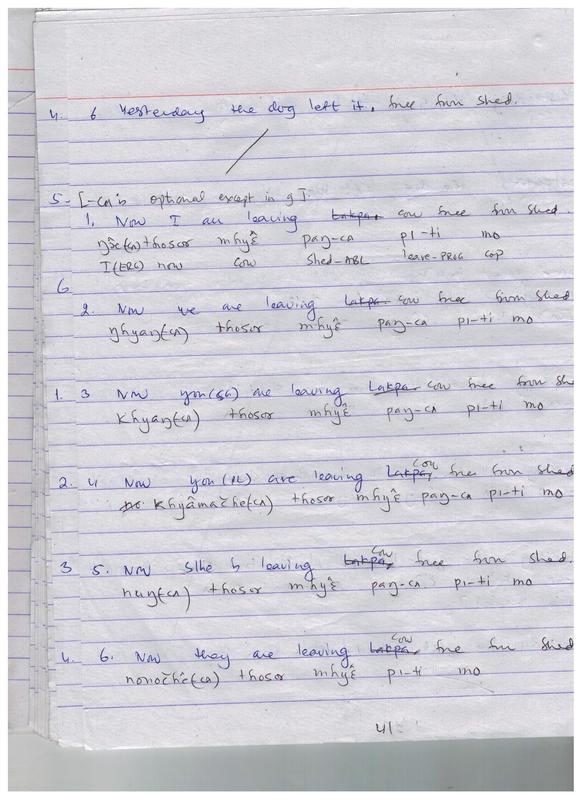 4. 6 Yesterday the dog left it, free from shed.
5- [-ca is optional except in 9].
1. Now I am leaving Lakpa, cow free from shed.
ŋɔ̂e(ca) thosor mhyɛ̂ paŋ-ca pi-ti mo
I(ERG) now cow shed-ABL leave-PROG cop
6
2. Now we are leaving Lakpa cow free from shed
ŋhyaŋ(ca) thosor mhyɛ̂ paŋ-ca pi-ti mo
1. 3 Now you(SG) are leaving Lakpa cow free from she
khyaŋ(ca) thosor mhyɛ̂ paŋ-ca pi-ti mo
2. 4 Now you (PL) are leaving Lakpa, cow free from shed
khyâmac̆he(ca) thosor mhyɛ̂ paŋ-ca pi-ti mo
3 5. Now s/he is leaving Lakpa, cow free from shed.
huŋ(ca) thosor mhyɛ̂ paŋ-ca pi-ti mo
4. 6. Now they are leaving Lakpa, cow free from shed
nonoc̆hê(ca) thosor mhyɛ̂ pi-ti mo
41